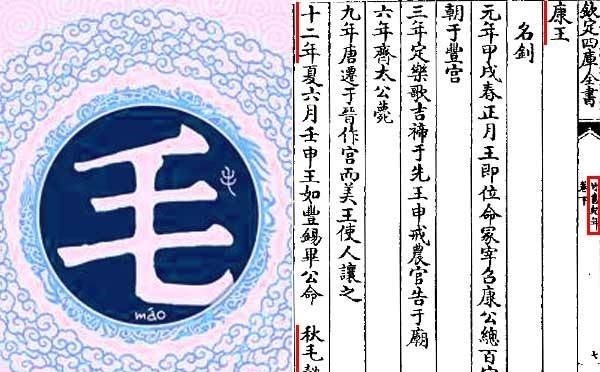 毛
máo
欽定四庫全書
竹書紀年
卷下
七
康王
名釗
元年甲戌春正月王即位命冢宰召康公總百
朝于豐宫
三年定樂歌吉禘于先王申戒農官告于廟
六年齊太公薨
九年唐遷于晉作宫而美王使人讓之
十二年夏六月壬申王如豐錫畢公命 秋毛